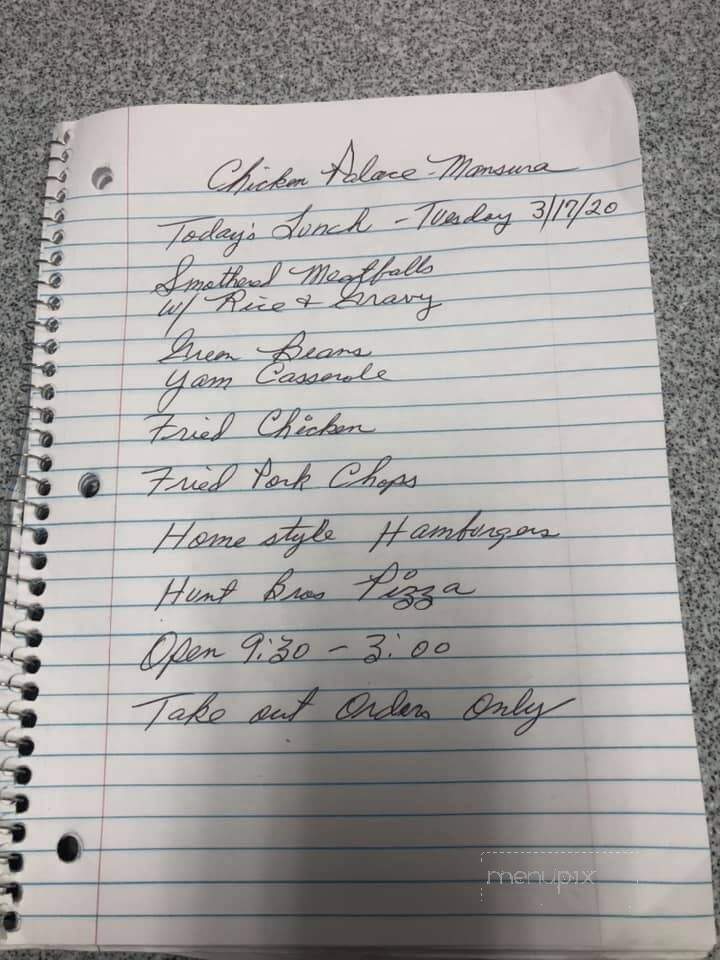 Chicken Palace - Mansura
Today's Lunch - Tuesday 3/17/20
Smothered Meatballs
w/ Rice + Gravy
Green Beans
Yam Casserole
Fried Chicken
Fried Pork Chops
Home style Hamburgers
Hunt Bros Pizza
Open 9:30 - 3:00
Take out Orders Only
menupix